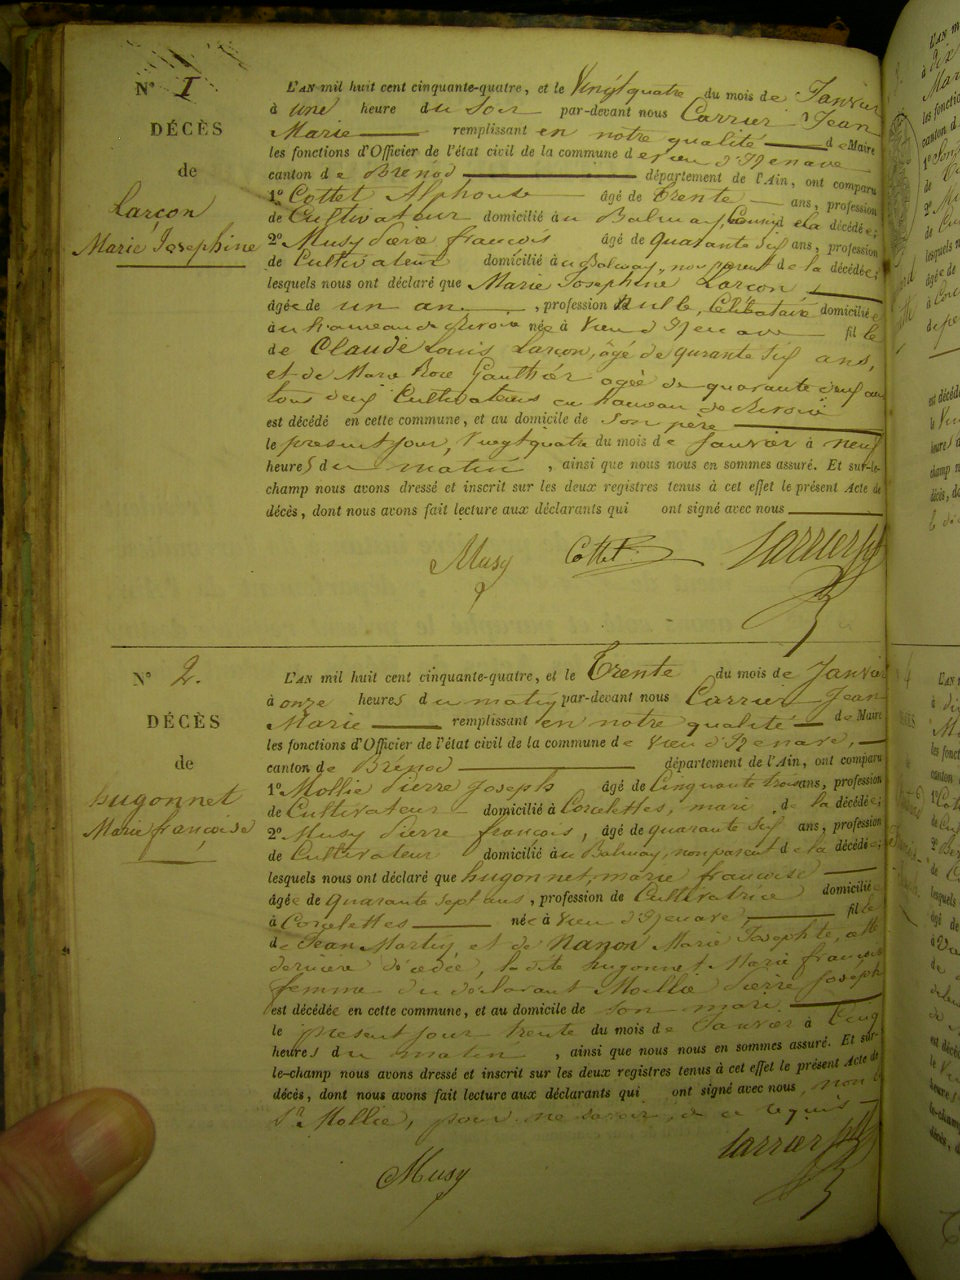 N° 1
DÉCÈS
de
Larçon
Marie Josephine
L'AN mil huit cent cinquante-quatre, et le Vingt quatre du mois de Janvier
à une heure du Soir par-devant nous Carrier Jean
Marie remplissant en notre qualité de Maire
les fonctions d'Officier de l'état civil de la commune de vieu d'Izenave
canton de Brénod département de l'Ain, ont comparu
1° Cottet Alphonse âgé de trente ans, profession
de Cultivateur domicilié au Balmay, de la décédée;
2° Musy Pierre françois âgé de quarante six ans, profession
de Cultivateur domicilié au Balmay, non parent de la décédée;
lesquels nous ont déclaré que Marie Josephine Larçon
âgée de un an , profession nulle, Célibataire domiciliée
au hameau de née à Vieu d'Izenave fille
de Claude Louis Larçon, âgé de quarante six ans,
et de Marie Rose Gauthier agée de quarante deux ans
tous deux Cultivateurs au hameau de
est décédé en cette commune, et au domicile de son père
le présent jour, vingt quatre du mois de Janvier à neuf
heures du matin , ainsi que nous nous en sommes assuré. Et sur-le-
champ nous avons dressé et inscrit sur les deux registres tenus à cet effet le présent Acte de
décès, dont nous avons fait lecture aux déclarants qui ont signé avec nous
Musy Cottet Carrier
N° 2.
DÉCÈS
de
hugonnet
Marie françoise
L'AN mil huit cent cinquante-quatre, et le Trente du mois de Janvier
à onze heures du matin par-devant nous Carrier Jean
Marie remplissant en notre qualité de Maire
les fonctions d'Officier de l'état civil de la commune de Vieu d'Izenave,
canton de Brénod département de l'Ain, ont comparu
1° Mollie Pierre Joseph âgé de Cinquante trois ans, profession
de Cultivateur domicilié à Corcelettes, mari de la décédée;
2° Musy Pierre françois, âgé de quarante six ans, profession
de Cultivateur domicilié au Balmay, non parent de la décédée;
lesquels nous ont déclaré que hugonnet, marie françoise
âgée de quarante sept ans, profession de Cultivatrice domiciliée
à Corcelettes née à Vieu d'Izenave fille
de Jean Martin et de Nanon Marie Josephte, cette
dernière décédée, la dite hugonnet Marie françoise
femme du déclarant Mollie Pierre Joseph
est décédée en cette commune, et au domicile de son mari
le présent jour trente du mois de Janvier à Cinq
heures du matin , ainsi que nous nous en sommes assuré. Et sur-
le-champ nous avons dressé et inscrit sur les deux registres tenus à cet effet le présent Acte de
décès, dont nous avons fait lecture aux déclarants qui ont signé avec nous, non le
Sr Mollie, pour ne savoir, de ce requis
Musy Carrier